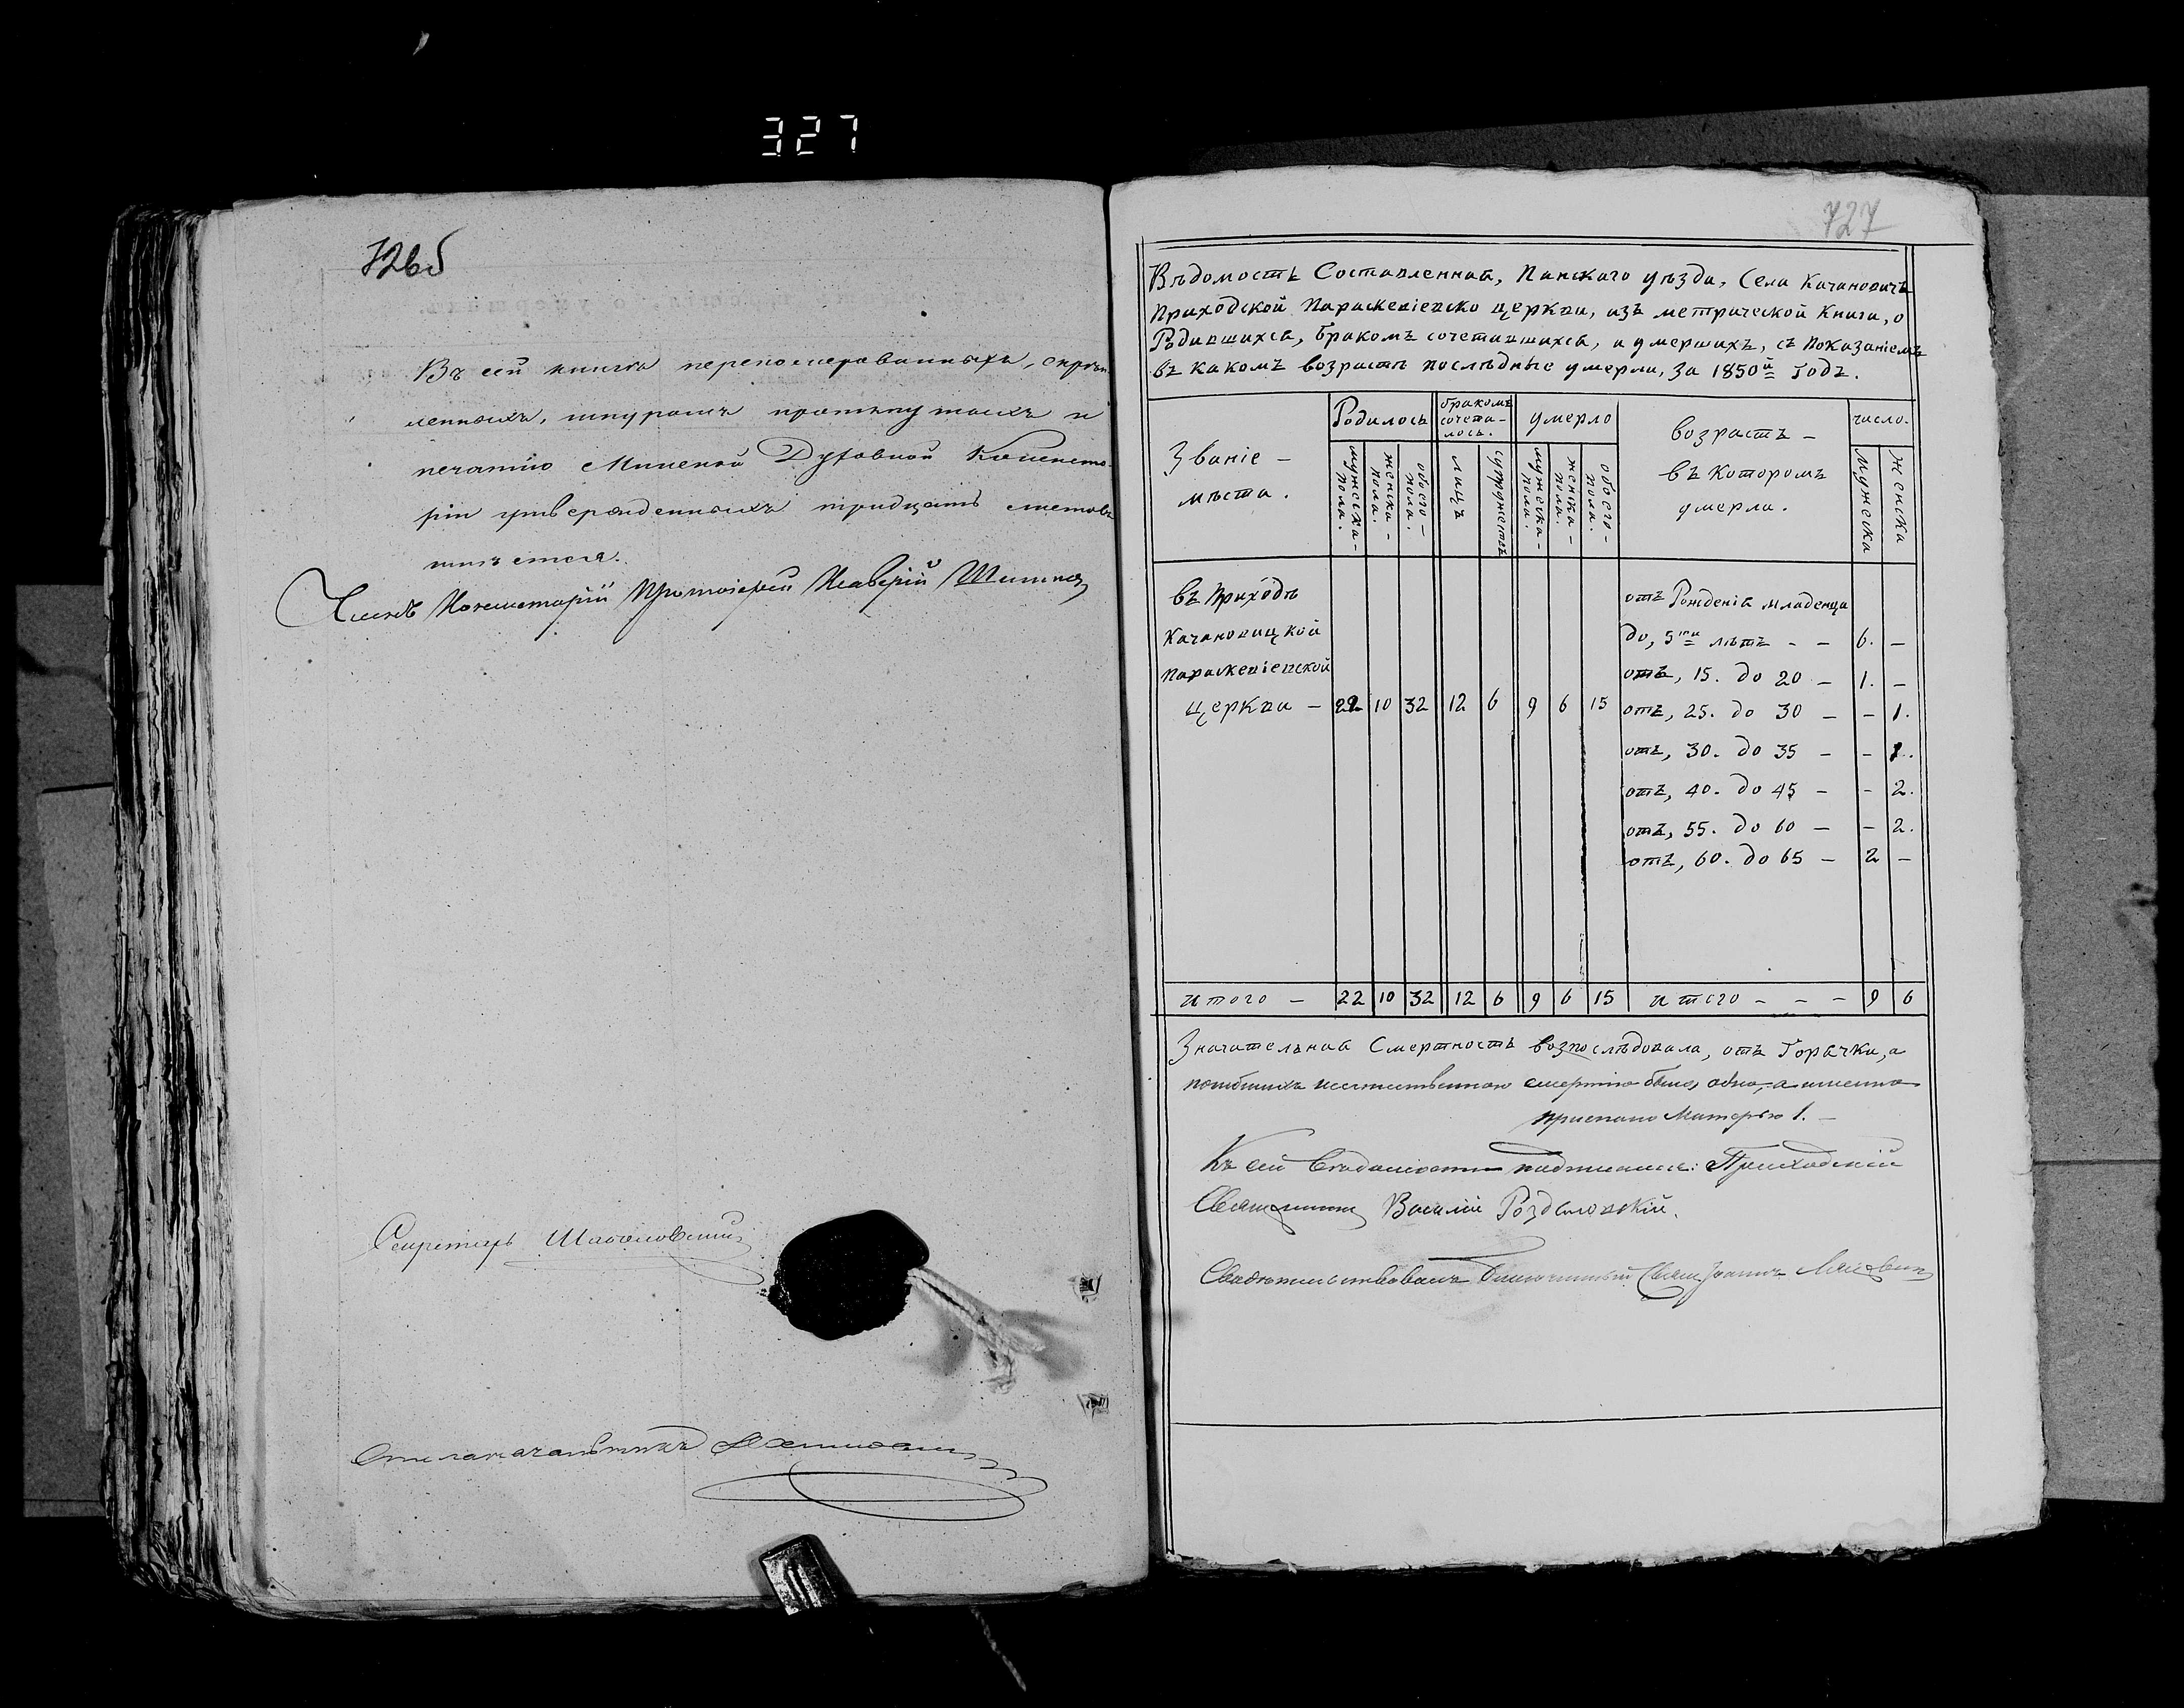 327
726б
Въ сей книгѣ перенумерованныхъ, скрѣп-
ленныхъ, шнуромъ протянутыхъ и
печатію Минской Духовной Консисто-
ріи утвержденныхъ тридцать листовъ
числится.
Членъ Консисторіи Протоіерей
Секретарь
Столоначальникъ
727
Вѣдомость Составленная, Пинскаго уѣзда, Села Качановичъ
Приходской Параскевіевско церкви, изъ метрической Книги, о
Родившихся, бракомъ сочетавшихся, и умершихъ, съ показаніемъ
въ какомъ возрастѣ послѣдные умерли, за 1850й годъ.
Званіе –
мѣста.
Родилось
мужеска – пола.
женска – пола.
обоего – пола.
бракомъ сочета- лось.
лицъ
супружествъ
умерло
мужеска – пола.
женска – пола.
обоего – пола.
возрастъ –
въ которомъ
умерли.
число.
мужеска
женска
въ Приходѣ
Качановицкой
Параскевіевской
церкви – 22 10 32 12 6 9 6 15
отъ Рожденія младенца
до, 5ти лѣтъ – – 6. –
отъ, 15. до 20 – 1. –
отъ, 25. до 30 – – 1.
отъ, 30. до 35 – – 1.
отъ, 40. до 45 – – 2.
отъ, 55. до 60 – – 2.
отъ, 60. до 65 – 2 –
итого – 22 10 32 12 6 9 6 15 итого – – – 9 6
Значительная Смертность возпослѣдовала, отъ Горячки, а
погибшихъ неестественною смертію было, одно, а именно
приспано Матерью 1. –
Къ сей Вѣдомости подписался: Приходскій
Священникъ Василій
Свидѣтельствовалъ Благочинный Свящ Іоаннъ